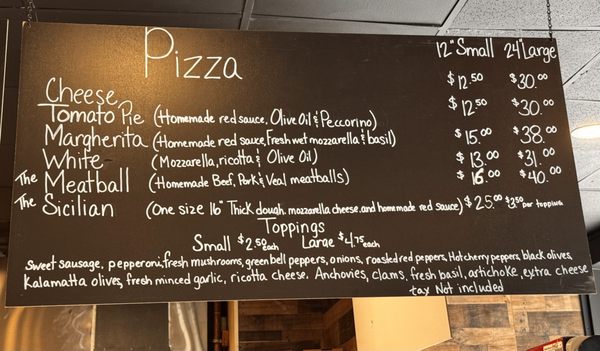 Pizza
12" Small 24" Large
Cheese $12.50 $30.00
Tomato Pie (Homemade red sauce, Olive Oil & Peccorino) $12.50 $30.00
Margherita (Homemade red sauce, Fresh wet mozzarella & basil) $15.00 $38.00
White (Mozzarella, ricotta & Olive Oil) $13.00 $31.00
The Meatball (Homemade Beef, Pork & Veal meatballs) $16.00 $40.00
The Sicilian (One size 16" Thick dough, mozzarella cheese, and homemade red sauce) $25.00 $3.50 per topping
Toppings
Small $2.50 each Large $4.75 each
Sweet sausage, pepperoni, fresh mushrooms, green bell peppers, onions, roasted red peppers, Hot cherry peppers, black olives,
Kalamatta olives, fresh minced garlic, ricotta cheese. Anchovies, clams, fresh basil, artichoke, extra cheese
tax Not included